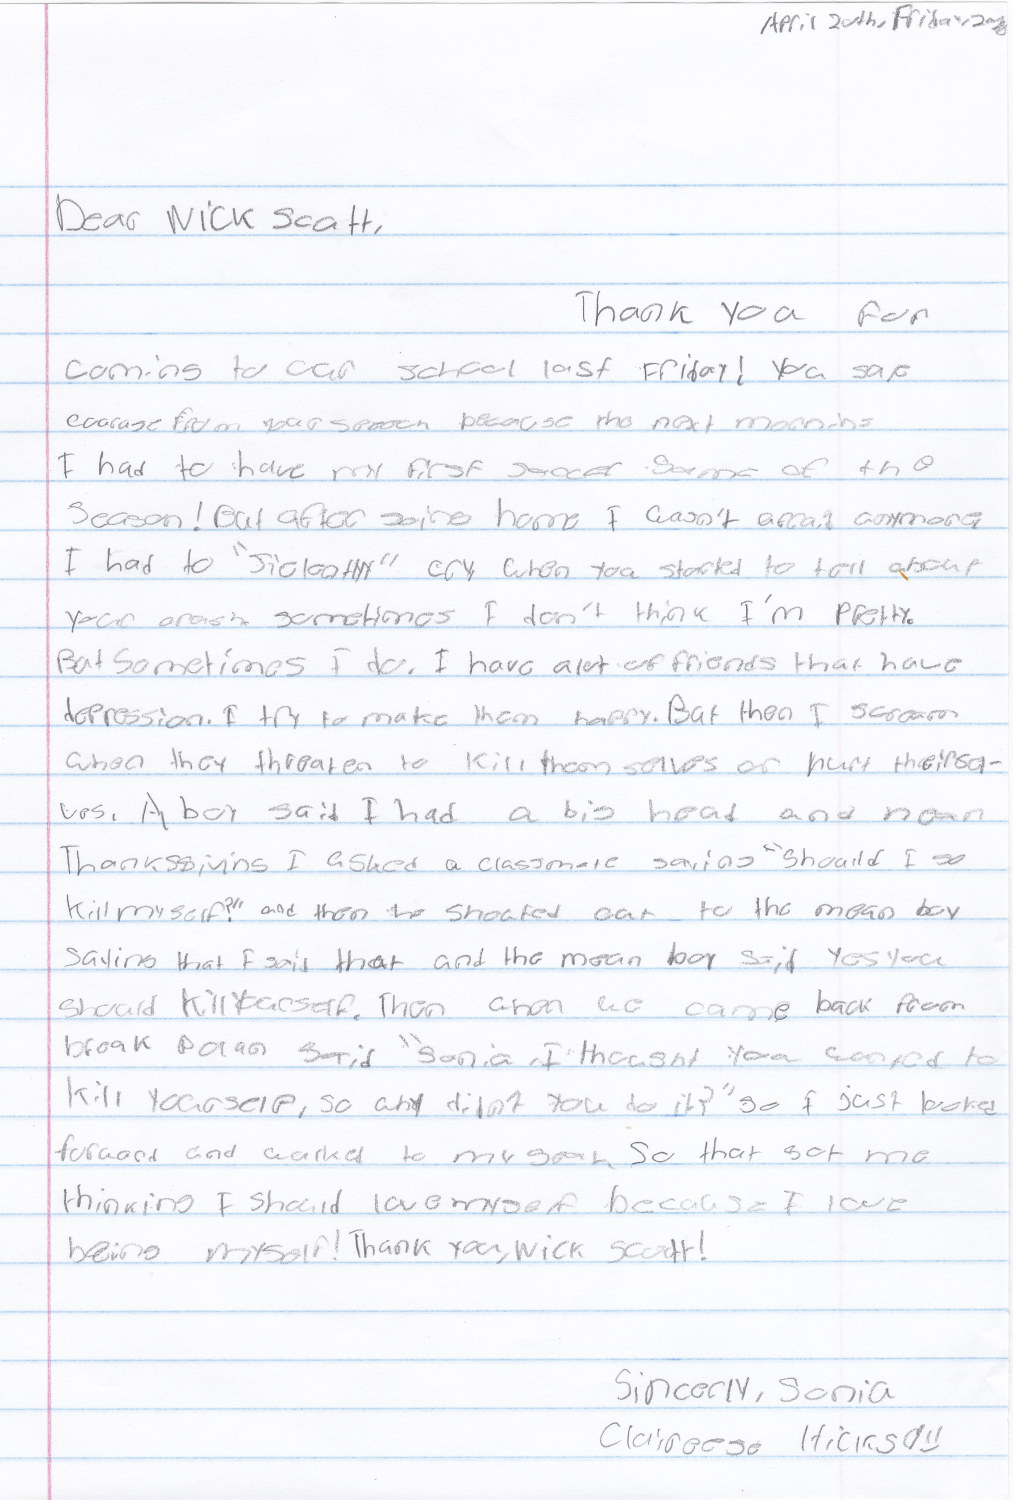 April 20th, Friday, 2018
Dear Nick Scott,
Thank you for
coming to our school last Friday! You gave
courage from your speech because the next morning
I had to have my first soccer game of the
season! But after going home I wasn't afraid anymore
I had to "silently" cry when you started to tell about
your crash sometimes I don't think I'm pretty.
But Sometimes I do. I have alot of friends that have
depression. I try to make them happy. But then I scream
when they threaten to kill themselves or hurt theirsel-
ves. A boy said I had a big head and near
Thanksgiving I asked a classmate saying "should I go
kill myself?" and then he shouted out to the mean boy
saying that I said that and the mean boy said yes you
should kill yourself. Then when we came back from
break said "Sonia I thought you wanted to
kill yourself, so why didn't you do it?" so I just looked
forward and walked to my seat. So that got me
thinking I should love myself because I love
being myself! Thank you, Nick Scott!
Sincerly, Sonia
Claireese Hicks